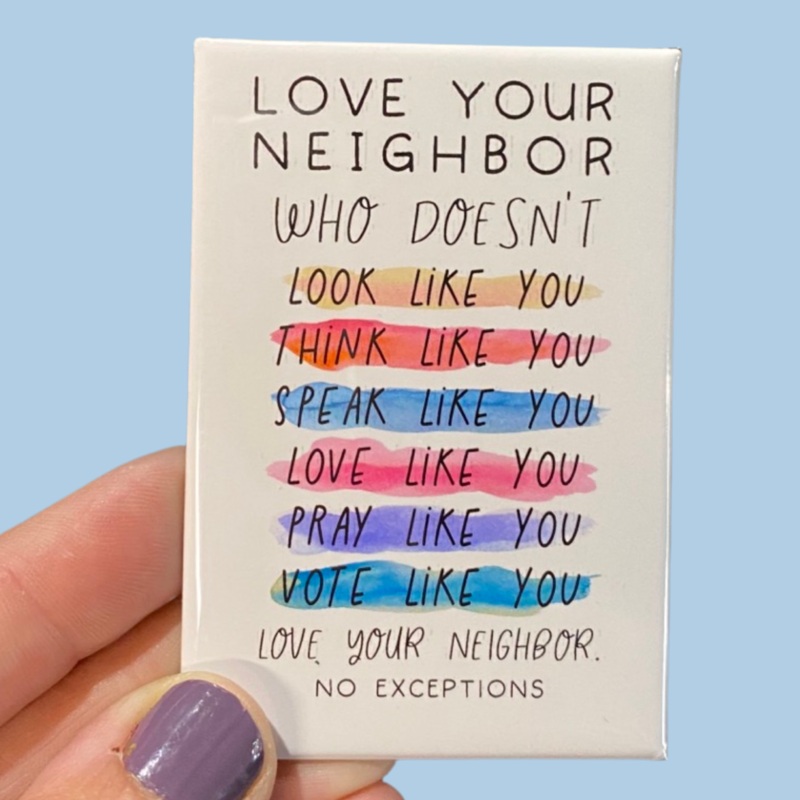 LOVE YOUR
NEIGHBOR
WHO DOESN'T
LOOK LiKE YOU
THiNK LiKE YOU
SPEAK LiKE YOU
LOVE LiKE YOU
PRAY LiKE YOU
VOTE LiKE YOU
LOVE YOUR NEIGHBOR.
NO EXCEPTIONS